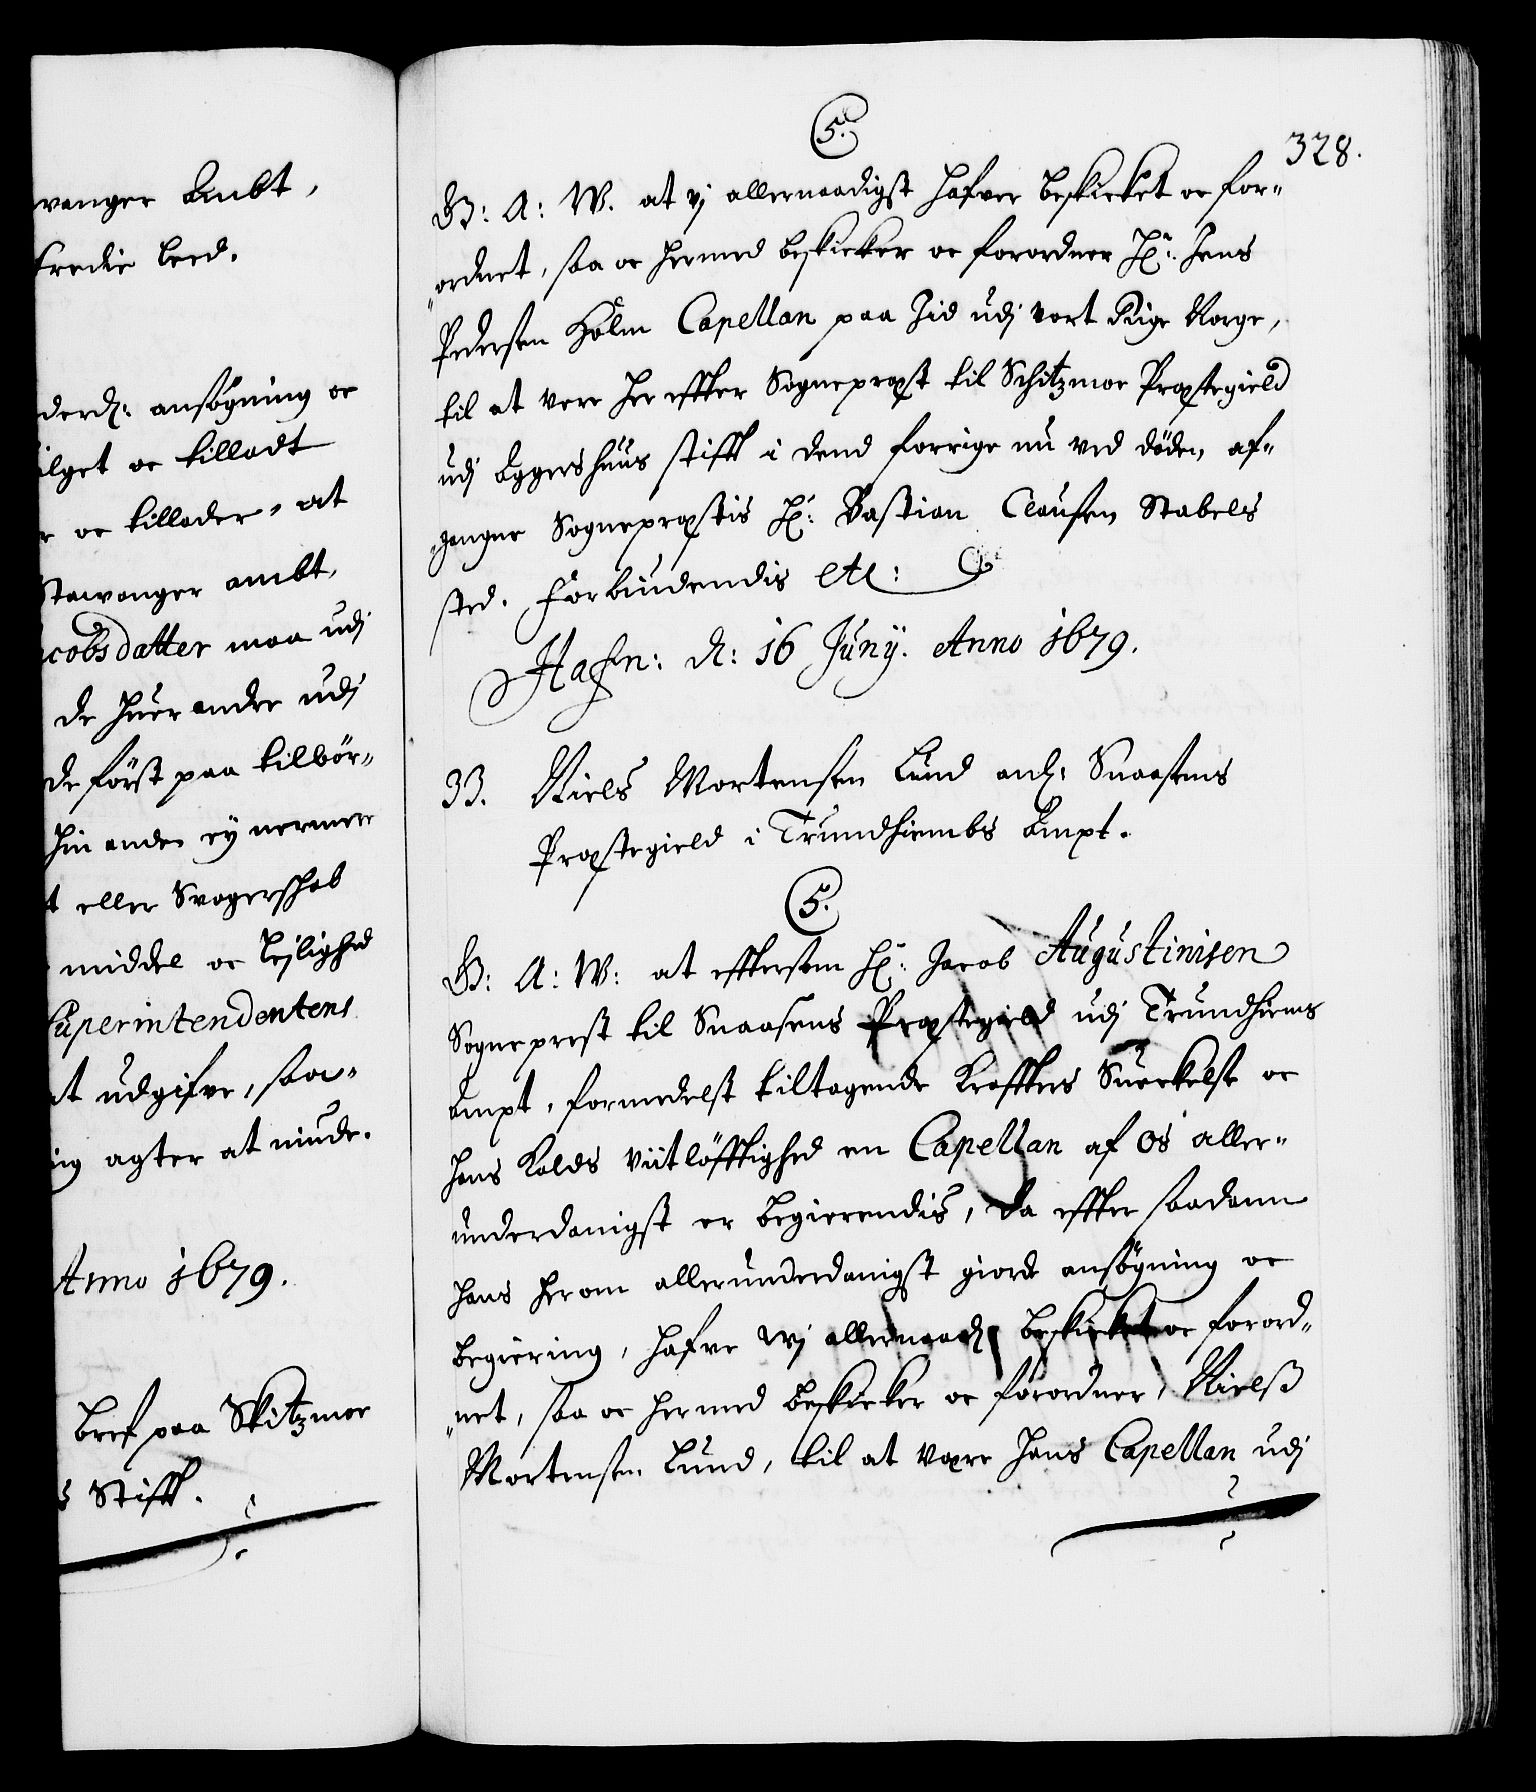 wanger Ambt,
tredie leed.
derd: ansögning oc
ilget oc tilladt
r oc tillader, at
Stawanger ambt,
cobsdatter maa udj
de huer andre udj
de först paa tilbör-
hin anden ej nermere
t eller Svogerschab
middel oc Lejlighed
Superintendentens
at udgifve, saa-
ig agter at niude.
Anno 1679.
bref paa Skitzmoe
s Stifft.
328.
5.
G: A: W. at vj allernaadigst hafver beskicket oc for-
ordnet, saa oc hermed beskicker oc forordner Hr: Jens
Pedersen Holm Capellan paa Jid udj vort Rige Norge,
til at vere her effter Sogneprest til Schitzmoe Prestegield
udj Aggershuus stifft i dend forrige nu ved döden af-
gangne Sogneprestis Hr: Bastian Clausen Stabels
sted. Forbiudendis etc:
Hafn: d: 16 Junij. Anno 1679.
33. Niels Mortensen Lund anl: Snaasens
Prestegield i Trundhiembs Ampt.
5.
G: A: W: at efftersom Hr: Jacob Augustinisen
Sogneprest til Snaasens Prestegield udj Trundhiems
Ampt, formedelst tiltagende Krafftes Sueckelse oc
hans Kalds viitlöfftighed en Capellan af os aller-
underdanigst er begierendis, da effter saadann
hans herom allerunderdanigst giorde ansögning oc
begiering, hafve wj allernaadl beskicket oc forord-
net, saa oc hermed beskicker oc forordner, Nielss
Mortensen Lund, til at være hans Capellan udj